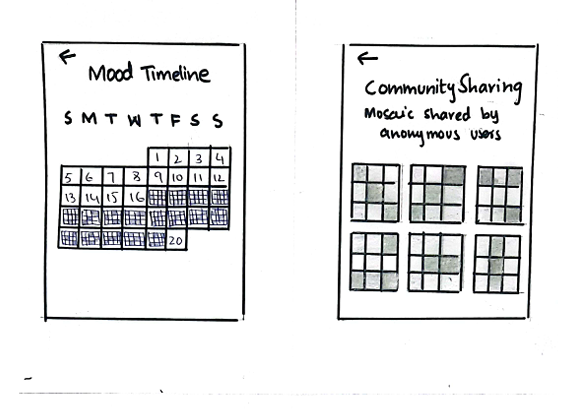 ←
Mood Timeline
S M T W T F S S
1 2 3 4
5 6 7 8 9 10 11 12
13 14 15 16
20
←
Community Sharing
Mosaic shared by
anonymous users